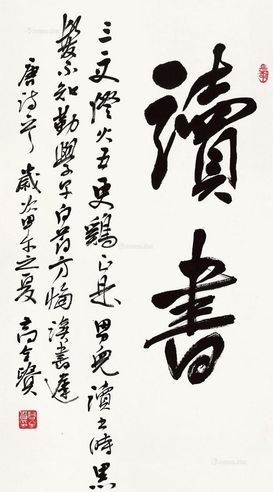 讀書
三更燈火五更鷄正是男兒讀書時黑
髮不知勤學早白首方悔讀書遲
唐詩 歲次甲午之夏